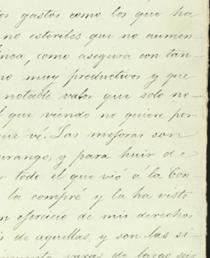 os gastos como los que ha
no estériles que no aumen
como asegura con tan
no muy productivos y que
notable valor que solo no
l que viendo no quiere por
que vé. Las mejoras son
urango, y para huir de
todo el que vió a la Con
la compré y la ha visto
en ejercicio de mis derechos
de aquellas, y son las si
varas de